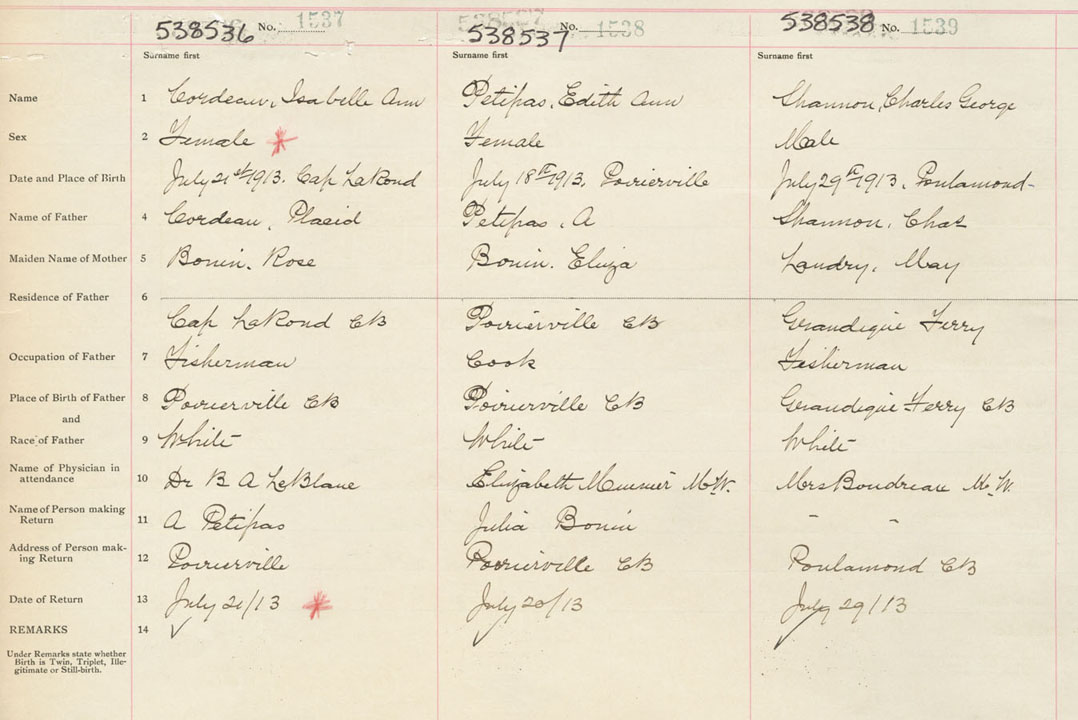 538536 No. 1537 538537 No. 1538 538538 No. 1539
Surname first Surname first Surname first
Name 1 Cordeau, Isabelle Ann Petipas, Edith Ann Shannon, Charles George
Sex 2 Female Female Male
Date and Place of Birth July 21st 1913. Cap LaRond July 18th 1913, Poirierville July 29th 1913, Poulamond
Name of Father 4 Cordeau, Placid Petipas, A Shannon, Chas
Maiden Name of Mother 5 Bonin. Rose Bonin. Eliza Landry, May
Residence of Father 6
Cap LaRond CB Poirierville CB Grandique Ferry
Occupation of Father 7 Fisherman Cook Fisherman
Place of Birth of Father 8 Poirierville CB Poirierville CB Grandique Ferry CB
and
Race of Father 9 White White White
Name of Physician in
attendance 10 Dr B A LeBlanc Elizabeth M.W. Mrs Boudreau M.W.
Name of Person making
Return 11 A Petipas Julia Bonin " "
Address of Person mak-
ing Return 12 Poirierville Poirierville CB Poulamond CB
Date of Return 13 July 21/13 July 20/13 July 29/13
REMARKS 14
Under Remarks state whether
Birth is Twin, Triplet, Ille-
gitimate or Still-birth.